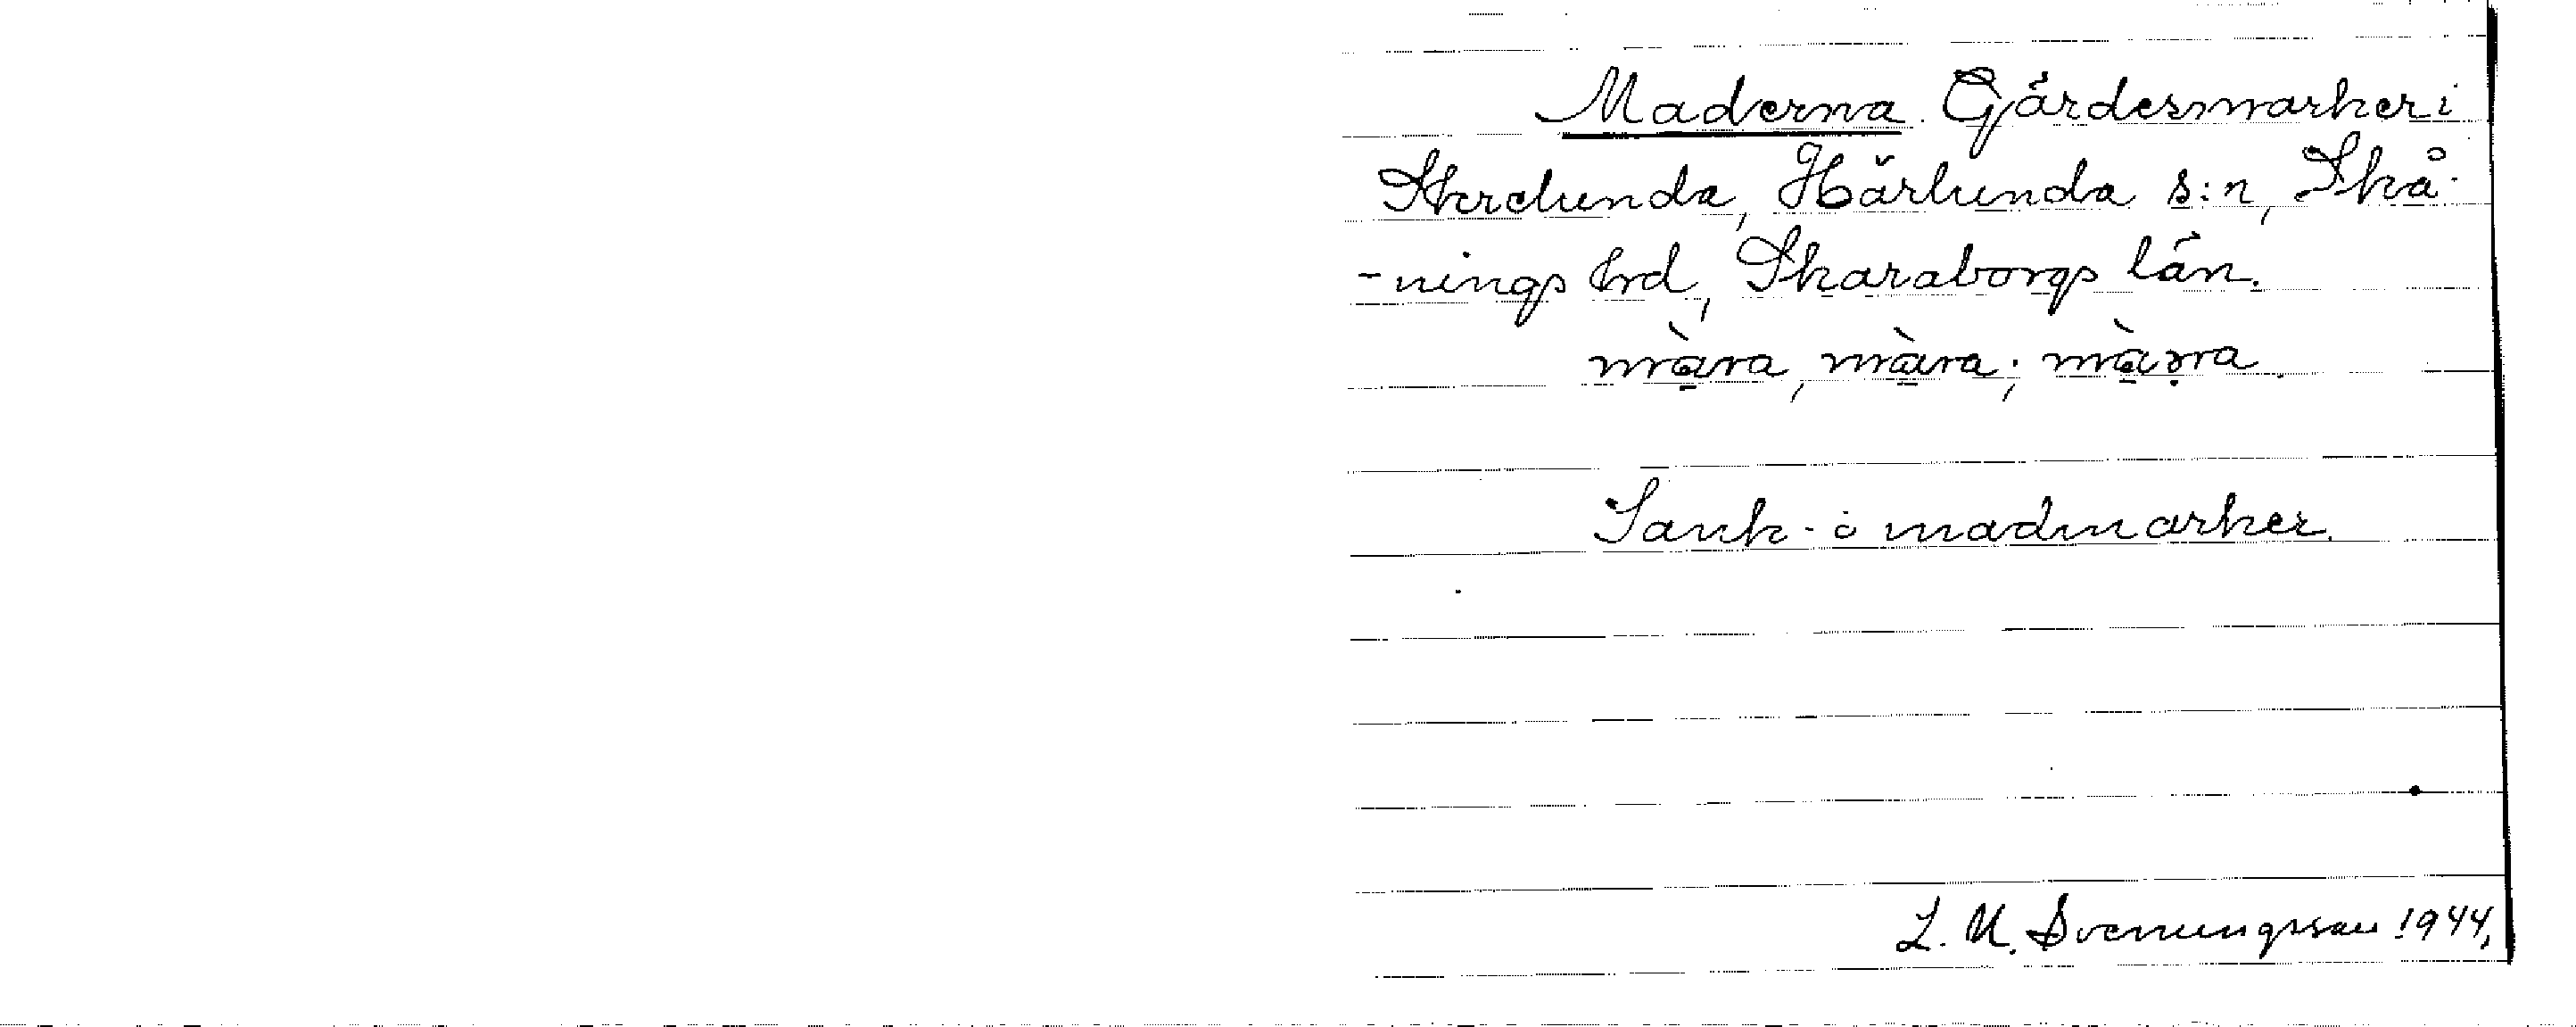 Maderna. Gärdesmarker i
Skrelunda, Härlunda s:n, Skå-
-nings hrd, Skaraborgs län.
Sank- o madmarker.
L. M. Svenungsson 1944.